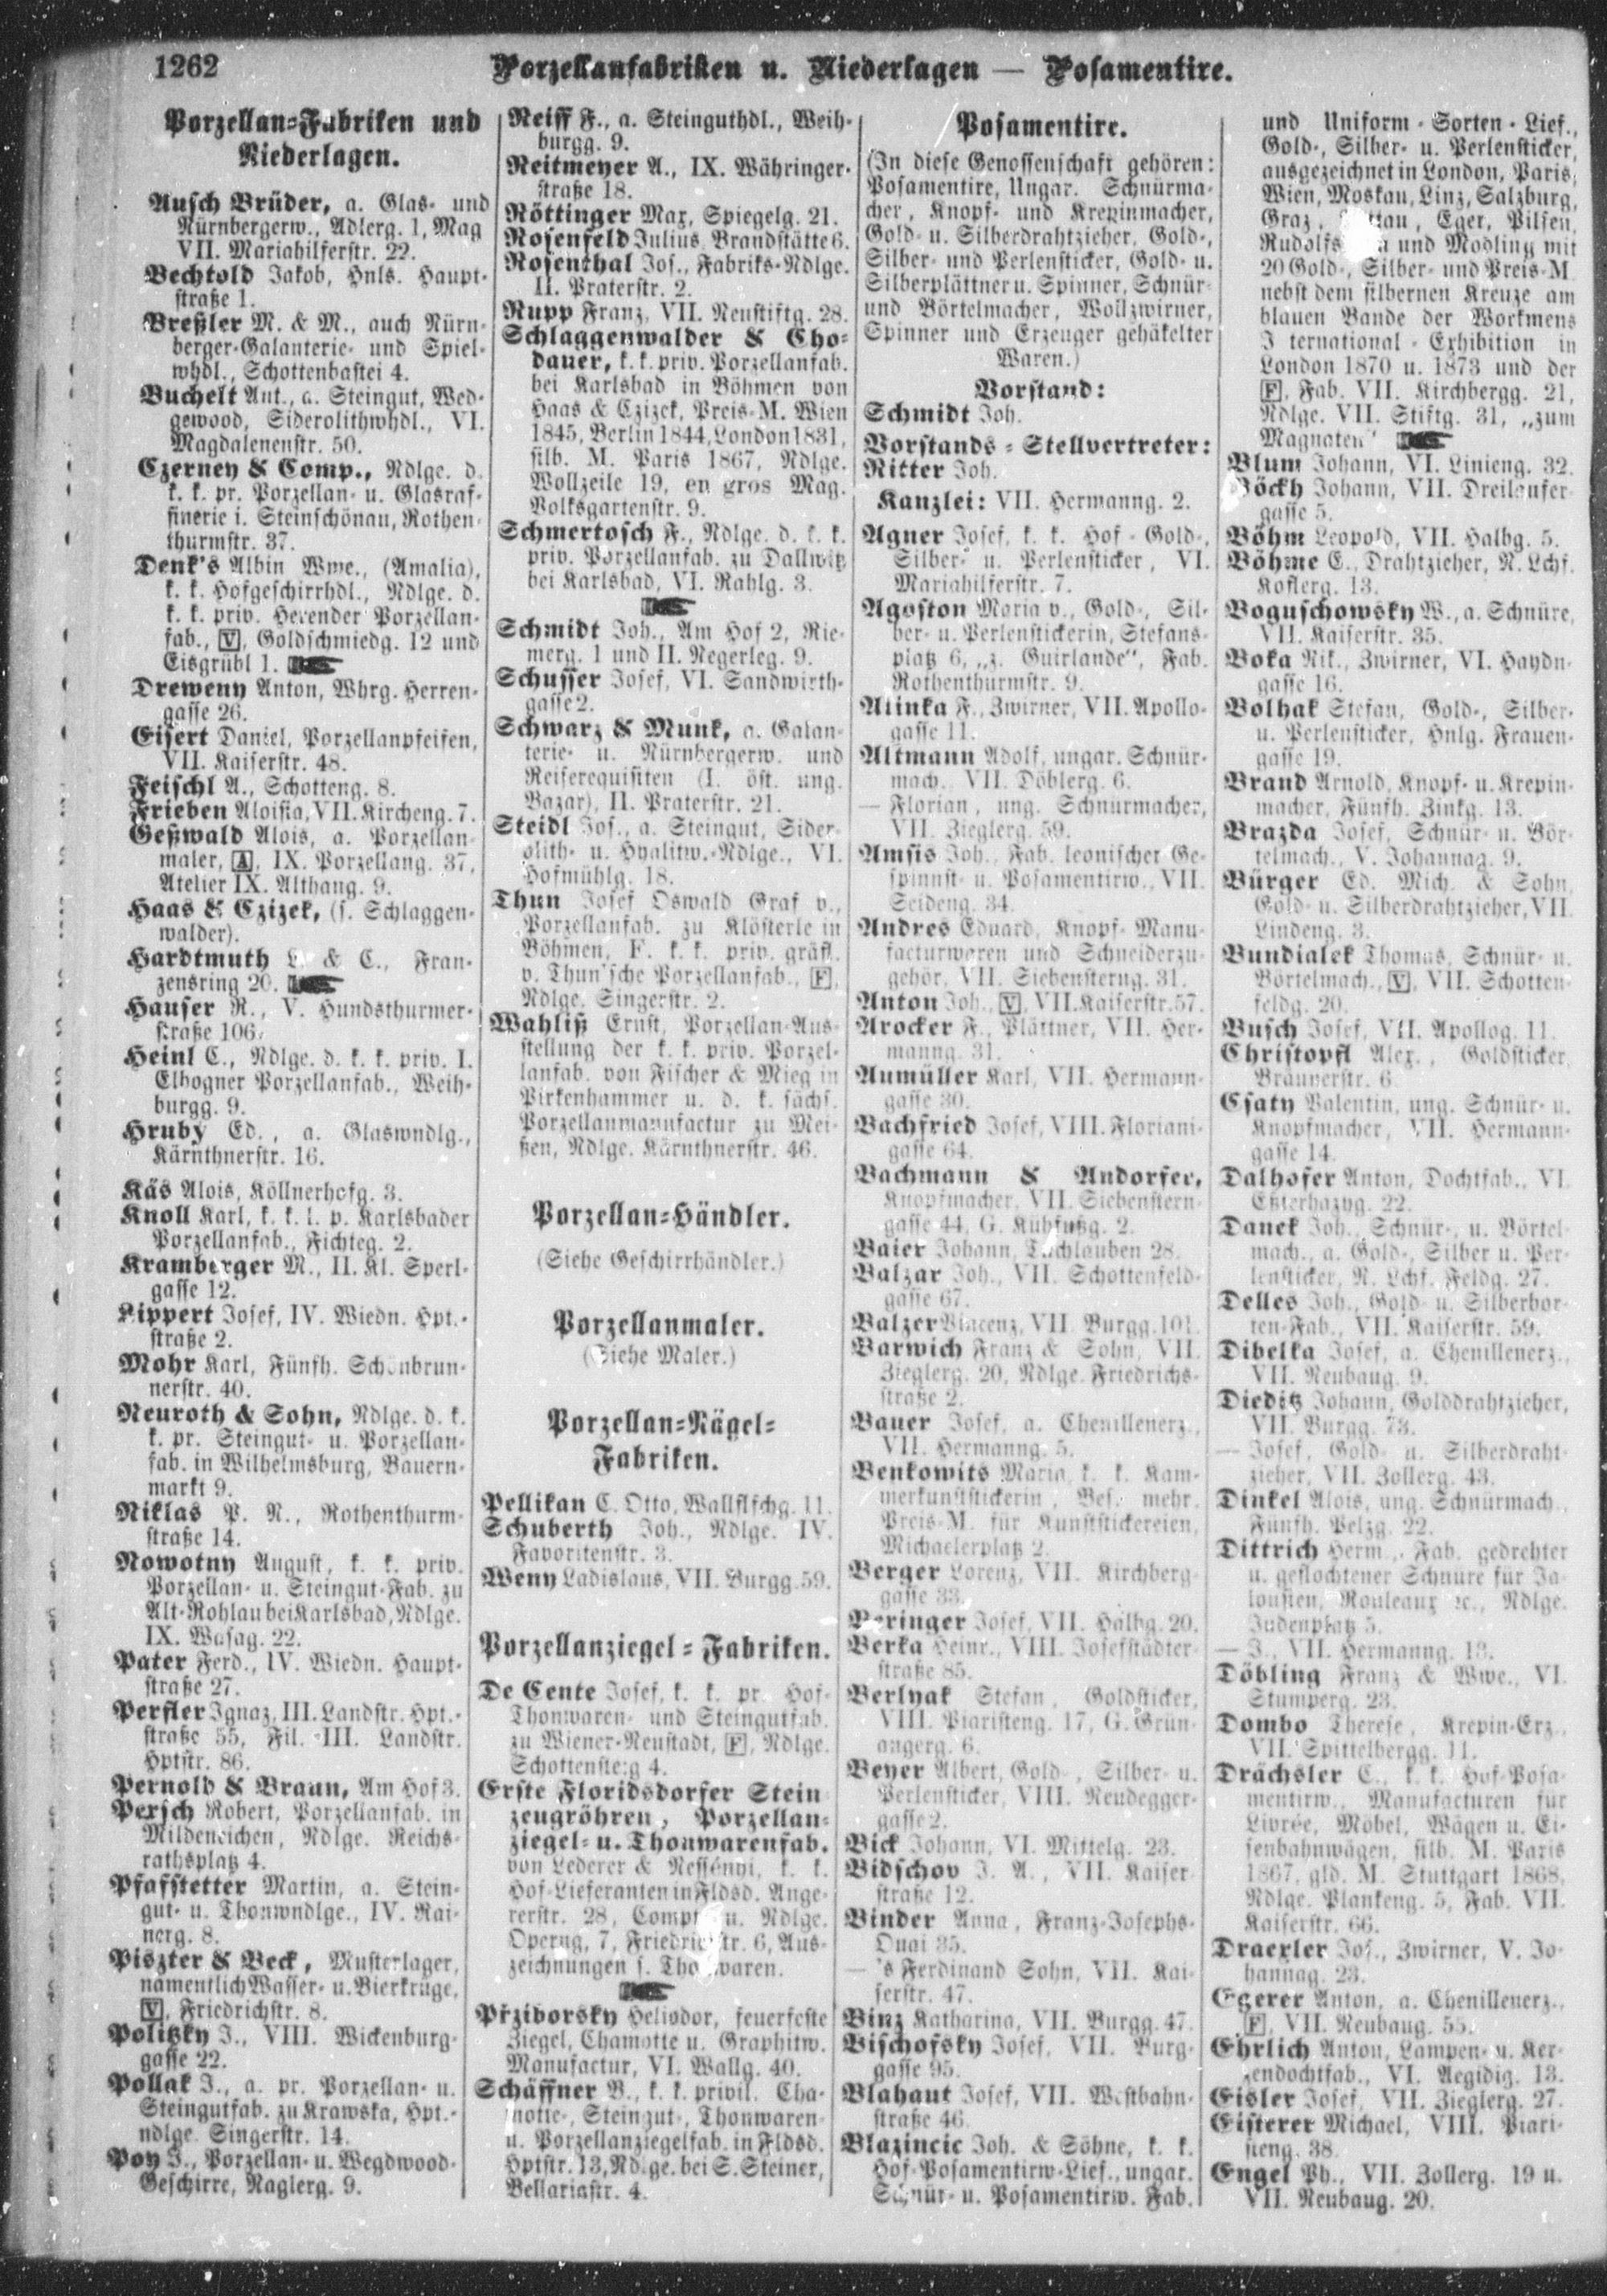 1262
Porzellanfabriken u. Niederlagen — Posamentire.
Porzellan-Fabriken und
Niederlagen.
Ausch Brüder, a. Glas- und
Nürnbergerw., Adlerg. 1, Mag
VII. Mariahilferstr. 22.
Bechtold Jakob, Hnls. Haupt-
straße 1.
Breßler M. & M., auch Nürn-
berger-Galanterie- und Spiel-
whdl., Schottenbastei 4.
Buchelt Ant., a. Steingut, Wed-
gewood, Siderolithwhdl., VI.
Magdalenenstr. 50.
Czerney & Comp., Ndlge. d.
k. k. pr. Porzellan- u. Glasraf-
finerie i. Steinschönau, Rothen-
thurmstr. 37.
Denk's Albin Wwe., (Amalia),
k. k. Hofgeschirrhdl., Ndlge. d.
k. k. priv. Herender Porzellan-
fab., V, Goldschmiedg. 12 und
Eisgrübl 1.
Dreweny Anton, Whrg. Herren-
gasse 26.
Eisert Daniel, Porzellanpfeifen,
VII. Kaiserstr. 48.
Feischl A., Schotteng. 8.
Frieben Aloisia, VII. Kircheng. 7.
Geßwald Alois, a. Porzellan-
maler, A, IX. Porzellang. 37,
Atelier IX. Althang. 9.
Haas & Czizek, (s. Schlaggen-
walder).
Hardtmuth L. & C., Fran-
zensring 20.
Hauser R., V. Hundsthurmer-
straße 106.
Heinl C., Ndlge. d. k. k. priv. I.
Elbogner Porzellanfab., Weih-
burgg. 9.
Hruby Ed., a. Glaswndlg.,
Kärnthnerstr. 16.
Käs Alois, Köllnerhofg. 3.
Knoll Karl, k. k. l. p. Karlsbader
Porzellanfab., Fichteg. 2.
Kramberger M., II. Kl. Sperl-
gasse 12.
Lippert Josef, IV. Wiedn. Hpt.-
straße 2.
Mohr Karl, Fünfh. Schönbrun-
nerstr. 40.
Neuroth & Sohn, Ndlge. d. k.
k. pr. Steingut- u. Porzellan-
fab. in Wilhelmsburg, Bauern-
markt 9.
Niklas P. N., Rothenthurm-
straße 14.
Nowotny August, k. k. priv.
Porzellan- u. Steingut-Fab. zu
Alt-Rohlau bei Karlsbad, Ndlge.
IX. Wasag. 22.
Pater Ferd., IV. Wiedn. Haupt-
straße 27.
Perfler Ignaz, III. Landstr. Hpt.-
straße 55, Fil. III. Landstr.
Hptstr. 86.
Pernold & Braun, Am Hof 3.
Persch Robert, Porzellanfab. in
Mildeneichen, Ndlge. Reichs-
rathsplatz 4.
Pfafstetter Martin, a. Stein-
gut- u. Thonwndlge., IV. Rai-
nerg. 8.
Piszter & Beck, Musterlager,
namentlich Wasser- u. Bierkrüge,
V, Friedrichstr. 8.
Politzky J., VIII. Wickenburg-
gasse 22.
Pollak J., a. pr. Porzellan- u.
Steingutfab. zu Krawska, Hpt.-
ndlge. Singerstr. 14.
Poy J., Porzellan- u. Wegdwood-
Geschirre, Naglerg. 9.
Reiff F., a. Steinguthdl., Weih-
burgg. 9.
Reitmeyer A., IX. Währinger-
straße 18.
Röttinger Max, Spiegelg. 21.
Rosenfeld Julius, Brandstätte 6.
Rosenthal Jos., Fabriks-Ndlge.
II. Praterstr. 2.
Rupp Franz, VII. Neustiftg. 28.
Schlaggenwalder & Cho-
dauer, k. k. priv. Porzellanfab.
bei Karlsbad in Böhmen von
Haas & Czizek, Preis-M. Wien
1845, Berlin 1844, London 1831,
silb. M. Paris 1867, Ndlge.
Wollzeile 19, en gros Mag.
Volksgartenstr. 9.
Schmertosch F., Ndlge. d. k. k.
priv. Porzellanfab. zu Dallwitz
bei Karlsbad, VI. Rahlg. 3.
Schmidt Joh., Am Hof 2, Rie-
merg. 1 und II. Negerleg. 9.
Schusser Josef, VI. Sandwirth-
gasse 2.
Schwarz & Munk, a. Galan-
terie- u. Nürnbergerw. und
Reiserequisiten (I. öst. ung.
Bazar), II. Praterstr. 21.
Steidl Jos., a. Steingut, Sider-
olith- u. Hyalitw.-Ndlge., VI.
Hofmühlg. 18.
Thun Josef Oswald Graf v.,
Porzellanfab. zu Klösterle in
Böhmen, F. k. k. priv. gräfl.
v. Thun'sche Porzellanfab., F,
Ndlge. Singerstr. 2.
Wahliß Ernst, Porzellan-Aus-
stellung der k. k. priv. Porzel-
lanfab. von Fischer & Mieg in
Pirkenhammer u. d. k. sächs.
Porzellanmanufactur zu Mei-
ßen, Ndlge. Kärnthnerstr. 46.
Porzellan-Händler.
(Siehe Geschirrhändler.)
Porzellanmaler.
(Siehe Maler.)
Porzellan-Nägel-
Fabriken.
Pellikan C. Otto, Wallflschg. 11.
Schuberth Joh., Ndlge. IV.
Favoritenstr. 3.
Weny Ladislaus, VII. Burgg. 59.
Porzellanziegel-Fabriken.
De Cente Josef, k. k. pr. Hof-
Thonwaren- und Steingutfab.
zu Wiener-Neustadt, F, Ndlge.
Schottensteig 4.
Erste Floridsdorfer Stein
zeugröhren, Porzellan-
ziegel- u. Thonwarenfab.
von Lederer & Nessényi, k. k.
Hof-Lieferanten in Fldsd. Ange-
rerstr. 28, Compt. u. Ndlge.
Operng. 7, Friedrichstr. 6, Aus-
zeichnungen s. Thonwaren.
Pržiborsky Heliodor, feuerfeste
Ziegel, Chamotte u. Graphitw.
Manufactur, VI. Wallg. 40.
Schäffner B., k. k. privil. Cha-
motte-, Steingut-, Thonwaren-
u. Porzellanziegelfab. in Fldsd.
Hptstr. 13, Ndlge. bei S. Steiner,
Bellariastr. 4.
Posamentire.
(In diese Genossenschaft gehören:
Posamentire, Ungar. Schnürma-
cher, Knopf- und Krepinmacher,
Gold- u. Silberdrahtzieher, Gold-,
Silber- und Perlensticker, Gold- u.
Silberplättner u. Spinner, Schnür-
und Börtelmacher, Wollzwirner,
Spinner und Erzeuger gehäkelter
Waren.)
Vorstand:
Schmidt Joh.
Vorstands-Stellvertreter:
Ritter Joh.
Kanzlei: VII. Hermanng. 2.
Agner Josef, k. k. Hof-Gold-,
Silber- u. Perlensticker, VI.
Mariahilferstr. 7.
Agoston Maria v., Gold-, Sil-
ber- u. Perlenstickerin, Stefans-
platz 6, „z. Guirlande“, Fab.
Rothenthurmstr. 9.
Alinka F., Zwirner, VII. Apollo-
gasse 11.
Altmann Adolf, ungar. Schnür-
mach. VII. Döblerg. 6.
— Florian, ung. Schnürmacher,
VII. Zieglerg. 59.
Amsis Joh., Fab. leonischer Ge-
spinnst- u. Posamentirw., VII.
Seideng. 34.
Andres Eduard, Knopf- Manu-
facturwaren und Schneiderzu-
gehör, VII. Siebensterng. 31.
Anton Joh., V, VII. Kaiserstr. 57.
Arocker F., Plättner, VII. Her-
manng. 31.
Aumüller Karl, VII. Hermann-
gasse 30.
Bachfried Josef, VIII. Floriani-
gasse 64.
Bachmann & Andorfer,
Knopfmacher, VII. Siebenstern-
gasse 44, G. Kühfußg. 2.
Baier Johann, Tuchlauben 28.
Balzar Joh., VII. Schottenfeld-
gasse 67.
Balzer Vincenz, VII. Burgg. 101.
Barwich Franz & Sohn, VII.
Zieglerg. 20, Ndlge. Friedrichs-
straße 2.
Bauer Josef, a. Chenillenerz.,
VII. Hermanng. 5.
Benkowits Maria, k. k. Kam-
merkunststickerin, Bes. mehr.
Preis-M. für Kunststickereien,
Michaelerplatz 2.
Berger Lorenz, VII. Kirchberg-
gasse 33.
Beringer Josef, VII. Halbg. 20.
Berka Heinr., VIII. Josefstädter-
straße 85.
Berlyak Stefan, Goldsticker,
VIII. Piaristeng. 17, G. Grün-
angerg. 6.
Beyer Albert, Gold-, Silber- u.
Perlensticker, VIII. Neudegger-
gasse 2.
Bick Johann, VI. Mittelg. 23.
Bidschov J. A., VII. Kaiser-
straße 12.
Binder Anna, Franz-Josephs-
Quai 35.
— 's Ferdinand Sohn, VII. Kai-
serstr. 47.
Binz Katharina, VII. Burgg. 47.
Bischofsky Josef, VII. Burg-
gasse 95.
Blahaut Josef, VII. Westbahn-
straße 46.
Blazincic Joh. & Söhne, k. k.
Hof-Posamentirw-Lief., ungar.
Schnür- u. Posamentirw. Fab.
und Uniform-Sorten-Lief.,
Gold-, Silber- u. Perlensticker,
ausgezeichnet in London, Paris,
Wien, Moskau, Linz, Salzburg,
Graz, Eger, Pilsen,
und Mödling mit
20 Gold-, Silber- und Preis-M.
nebst dem silbernen Kreuze am
blauen Bande der Workmens
I ternational-Exhibition in
London 1870 u. 1873 und der
F, Fab. VII. Kirchbergg. 21,
Ndlge. VII. Stiftg. 31, „zum
Magnaten“
Blum Johann, VI. Linieng. 32.
Böckh Johann, VII. Dreilaufer-
gasse 5.
Böhm Leopold, VII. Halbg. 5.
Böhme E., Drahtzieher, N. Lchf.
Koflerg. 13.
Boguschowsky W., a. Schnüre,
VII. Kaiserstr. 35.
Boka Nik., Zwirner, VI. Haydn-
gasse 16.
Bolhak Stefan, Gold-, Silber-
u. Perlensticker, Hnlg. Frauen-
gasse 19.
Brand Arnold, Knopf- u. Krepin-
macher, Fünfh. Zinkg. 13.
Brazda Josef, Schnür- u. Bör-
telmach., V. Johannag. 9.
Bürger Ed. Mich. & Sohn,
Gold- u. Silberdrahtzieher, VII.
Lindeng. 3.
Bundialek Thomas, Schnür- u.
Börtelmach., V, VII. Schotten-
feldg. 20.
Busch Josef, VII. Apollog. 11.
Christopfl Alex., Goldsticker,
Bräunerstr. 6.
Csaty Valentin, ung. Schnür- u.
Knopfmacher, VII. Hermann-
gasse 14.
Dalhofer Anton, Dochtfab., VI.
Eßterhazyg. 22.
Danek Joh., Schnür-, u. Börtel-
mach., a. Gold-, Silber u. Per-
lensticker, N. Lchf. Feldg. 27.
Delles Joh., Gold- u. Silberbor-
ten-Fab., VII. Kaiserstr. 59.
Dibelka Josef, a. Chenillenerz.,
VII. Neubaug. 9.
Dieditz Johann, Golddrahtzieher,
VII. Burgg. 73.
— Josef, Gold- u. Silberdraht-
zieher, VII. Zollerg. 43.
Dinkel Alois, ung. Schnürmach.,
Fünfh. Pelzg. 22.
Dittrich Herm., Fab. gedrehter
u. geflochtener Schnüre für Ja-
lousien, Rouleaux ꝛc., Ndlge.
Judenplatz 5.
— J., VII. Hermanng. 13.
Döbling Franz & Wwe., VI.
Stumperg. 23.
Dombo Therese, Krepin-Erz.,
VII. Spittelbergg. 11.
Drächsler C., k. k. Hof-Posa-
mentirw., Manufacturen für
Livrée, Möbel, Wägen u. Ei-
senbahnwägen, silb. M. Paris
1867, gld. M. Stuttgart 1868,
Ndlge. Plankeng. 5, Fab. VII.
Kaiserstr. 66.
Draexler Jos., Zwirner, V. Jo-
hannag. 23.
Egerer Anton, a. Chenillenerz.,
F, VII. Neubaug. 55.
Ehrlich Anton, Lampen- u. Ker-
zendochtfab., VI. Aegidig. 13.
Eisler Josef, VII. Zieglerg. 27.
Eisterer Michael, VIII. Piari-
steng. 38.
Engel Ph., VII. Zollerg. 19 u.
VII. Neubaug. 20.